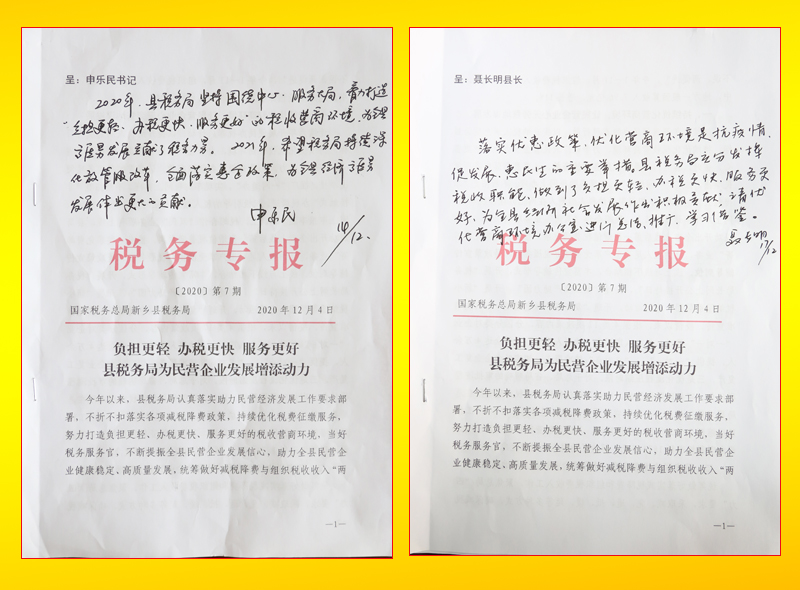 呈：申乐民书记
2020年，县税务局坚持围绕中心、服务大局，着力打造
“负担更轻、办税更快、服务更好”的税收营商环境，为全县
发展贡献了税务力量。2021年，希望税务局持续深
化放管服改革，全面落实惠企政策，为全县经济高质量
发展作出更大的贡献。
申乐民
14/12.
税务专报
〔2020〕第7期
国家税务总局新乡县税务局 2020年12月4日
负担更轻 办税更快 服务更好
县税务局为民营企业发展增添动力
今年以来，县税务局认真落实助力民营经济发展工作要求部
署，不折不扣落实各项减税降费政策，持续优化税费征缴服务，
努力打造负担更轻、办税更快、服务更好的税收营商环境，当好
税务服务官，不断提振全县民营企业发展信心，助力全县民营企
业健康稳定、高质量发展，统筹做好减税降费与组织税收收入“两
—1—
呈：聂长明县长
落实优惠政策，优化营商环境是抗疫情、
促发展、惠民生的主要举措。县税务局充分发挥
税收职能，做到了负担更轻、办税更快、服务更
好，为全县经济社会发展作出积极贡献。请优
化营商环境办公室进行总结、推广、学习借鉴。
聂长明
17/12
税务专报
〔2020〕第7期
国家税务总局新乡县税务局 2020年12月4日
负担更轻 办税更快 服务更好
县税务局为民营企业发展增添动力
今年以来，县税务局认真落实助力民营经济发展工作要求部
署，不折不扣落实各项减税降费政策，持续优化税费征缴服务，
努力打造负担更轻、办税更快、服务更好的税收营商环境，当好
税务服务官，不断提振全县民营企业发展信心，助力全县民营企
业健康稳定、高质量发展，统筹做好减税降费与组织税收收入“两
—1—